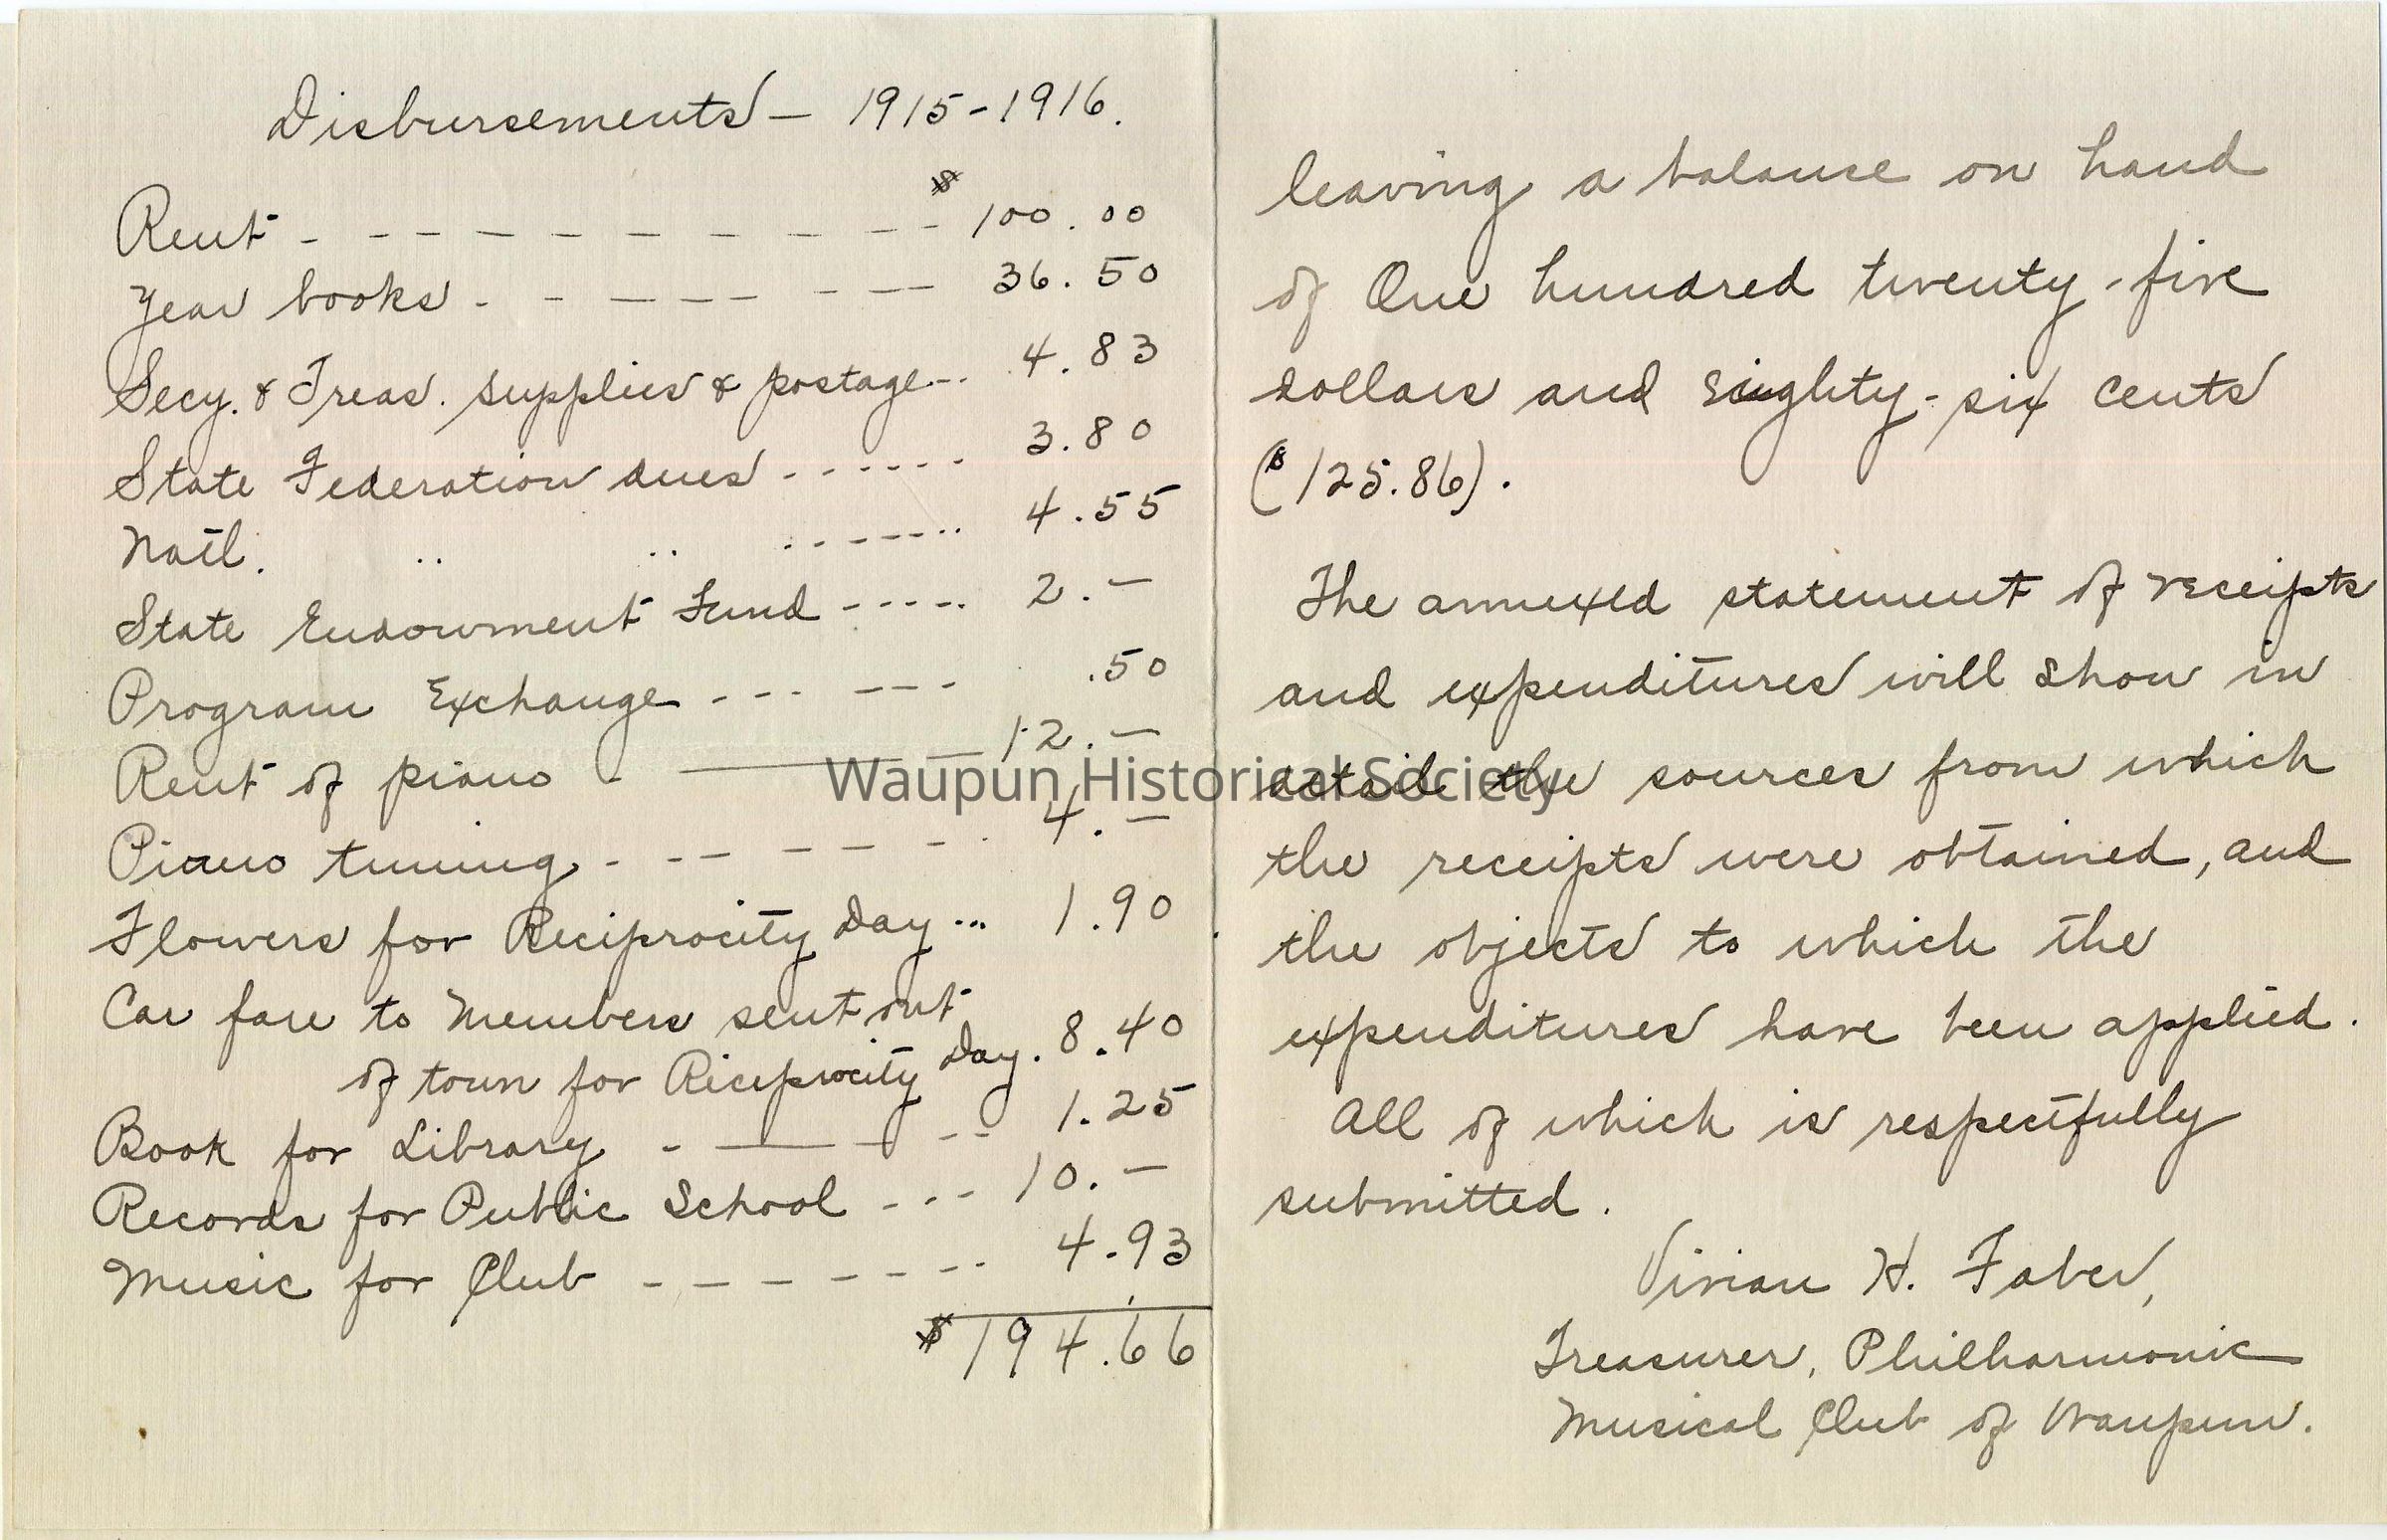 Disbursements — 1915-1916.
Rent - - - - - - - - - - - $100.00
Year books - - - - - - - - 36.50
Secy. & Treas. supplies & postage... 4.83
State Federation dues - - - - - - 3.80
Natl. " " - - - - - - - 4.55
State Endowment Fund - - - - - 2.—
Program Exchange - - - - - - .50
Rent of piano - — — 12.—
Piano tuning - - - - - - - 4.—
Flowers for Reciprocity Day ... 1.90
Car fare to members sent out
of town for Reciprocity Day. 8.40
Book for Library - — - - - 1.25
Records for Public School - - - 10.—
Music for Club - - - - - - - - 4.93
$194.66
leaving a balance on hand
of One hundred twenty-five
dollars and eighty-six cents
($125.86).
The annexed statement of receipts
and expenditures will show in
detail the sources from which
the receipts were obtained, and
the objects to which the
expenditures have been applied.
All of which is respectfully
submitted.
Vivian H. Faber,
Treasurer, Philharmonic
Musical Club of Waupun.
Waupun Historical Society